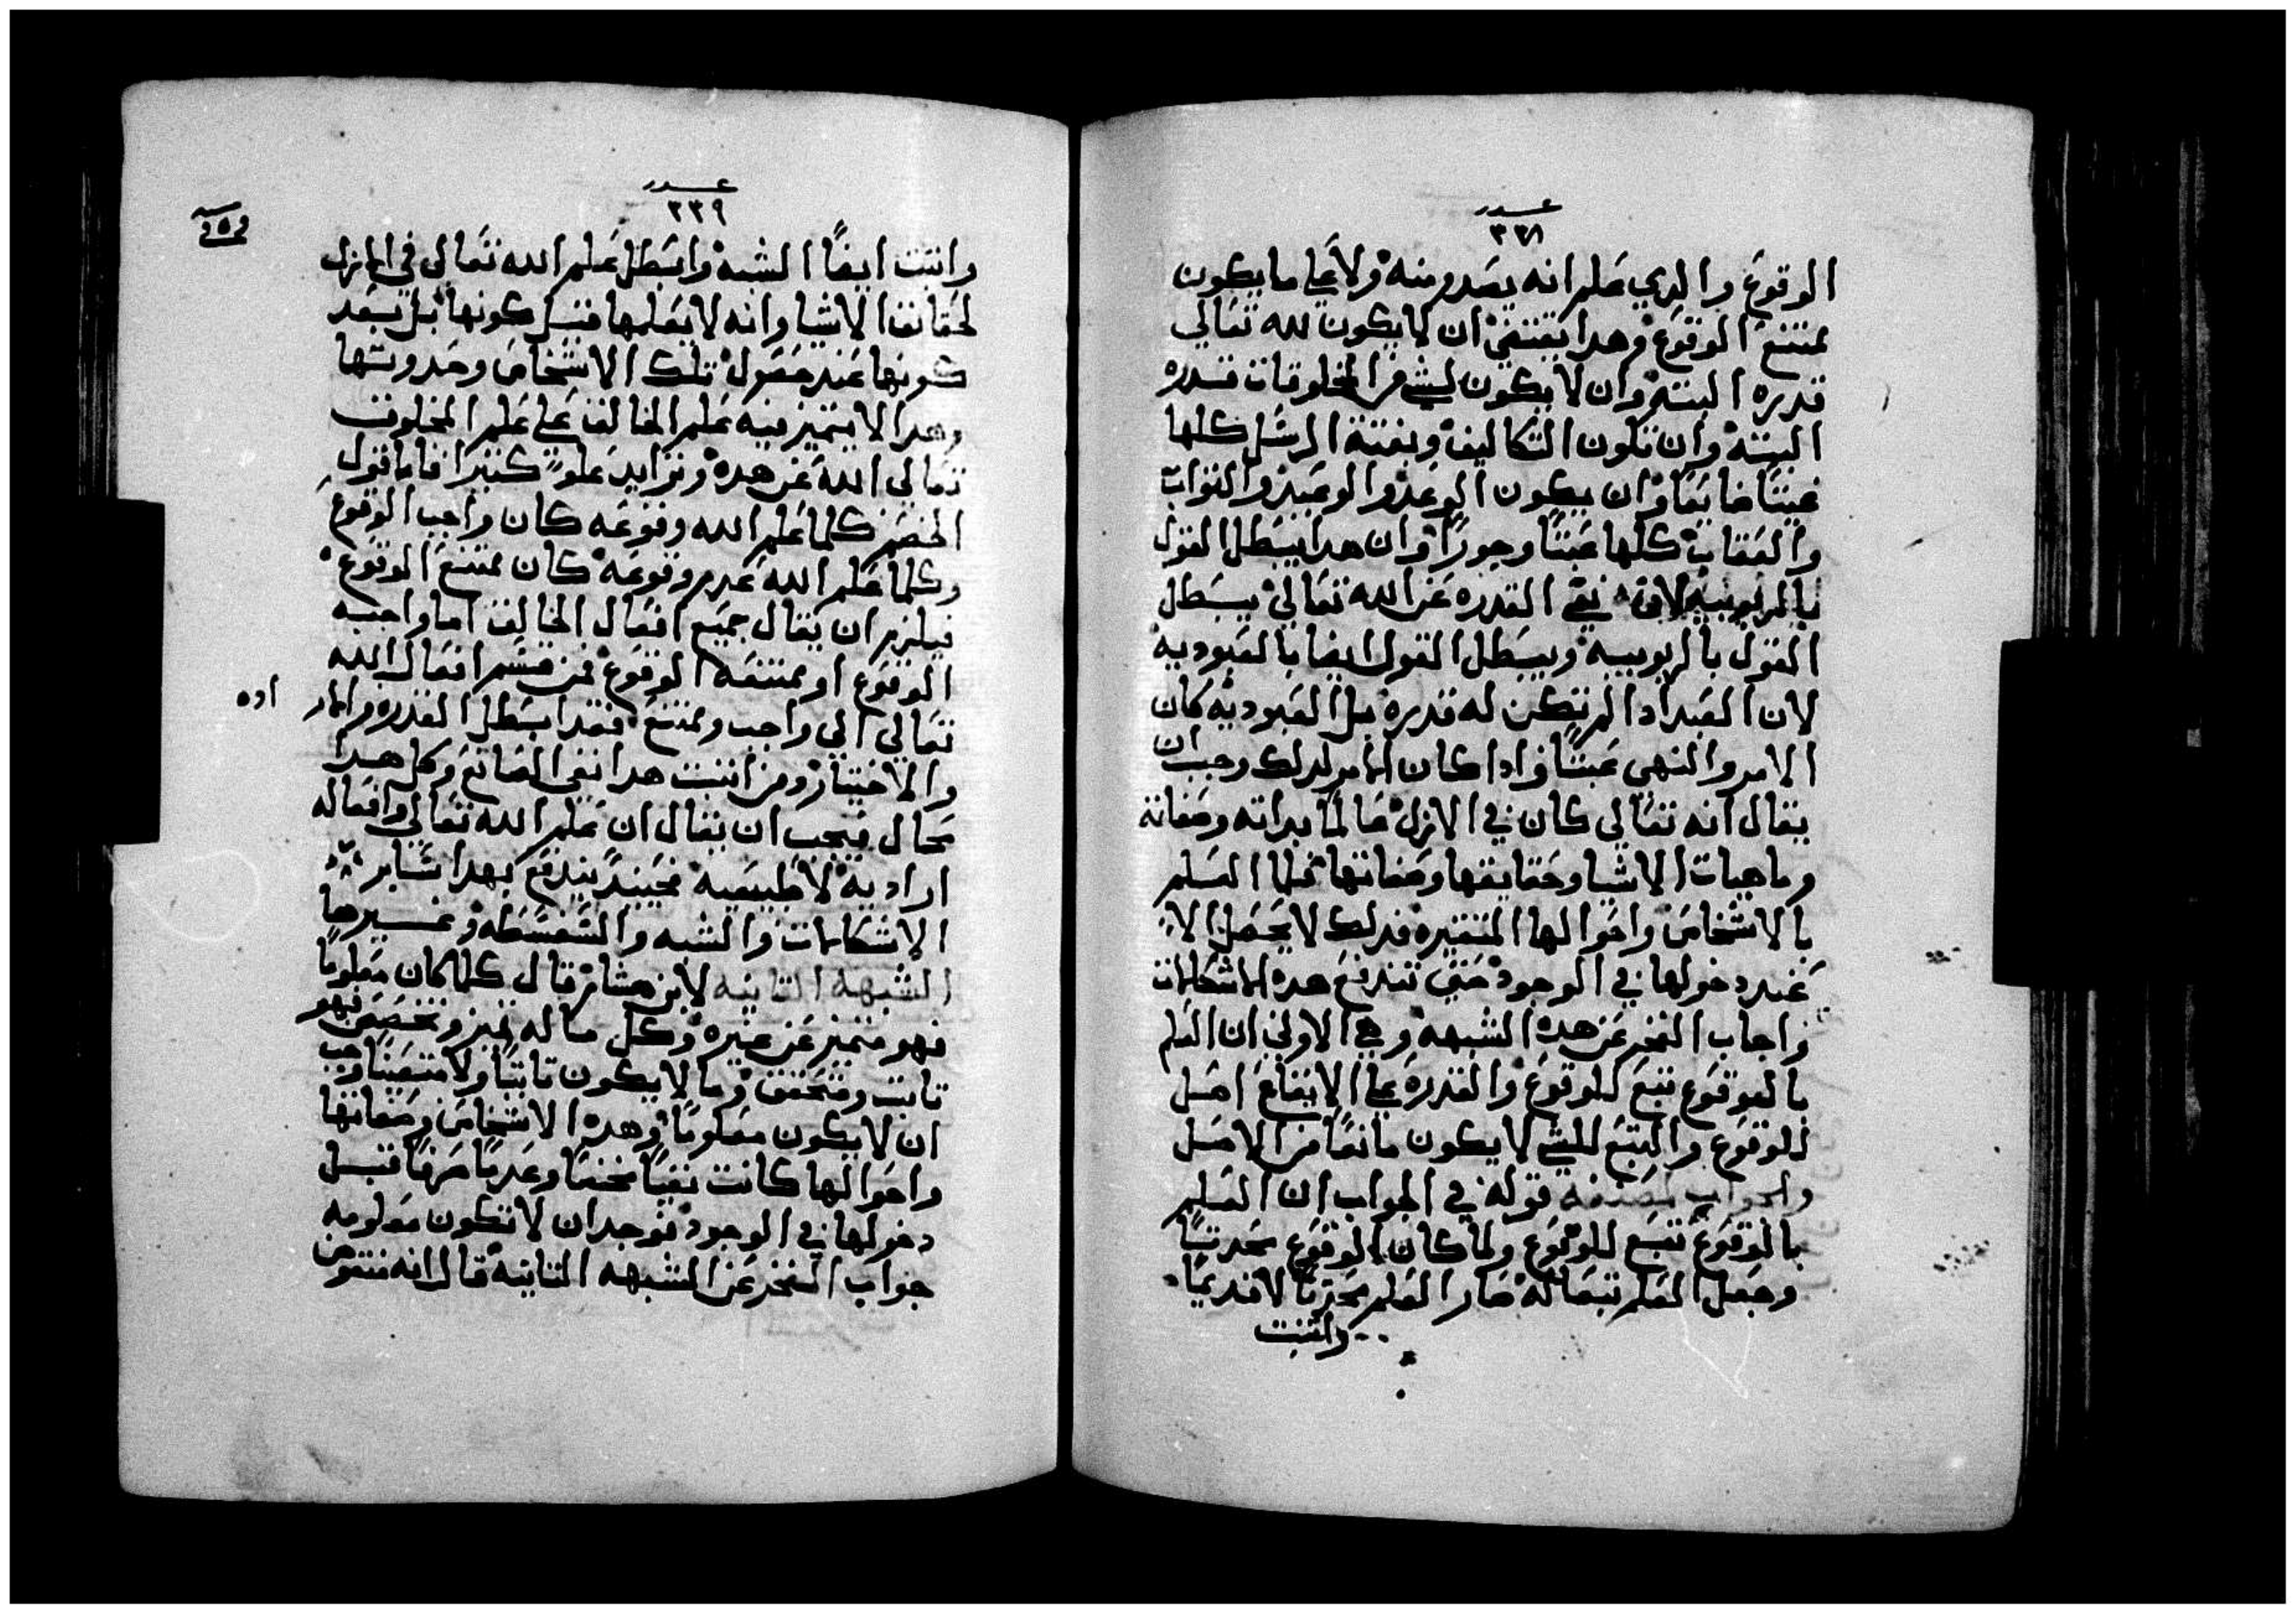 عدد
٣٣٨
الوقوع والدي علم انه يصدر منه ولا علي ما يكون
ممتنع الوقوع وهدا يقتضي ان لا يكون لله تعالي
قدره البته وان لا يكون لشي من المخلوقات قدره
البته وان تكون التكاليف وبعتة الرسل كلها
عبتا ضايعا وان يكون الوعد والوعيد والتواب
والعقاب كلها عبتا وجورا وان هدا يبطل القول
بالربوبيه لان نفي القدره عن الله تعالي يبطل
القول بالربوبيه ويبطل القول ايضا بالعبوديه
لان العبد ادا لم تكن له قدره بل العبوديه كان
الامر والنهي عبتا وادا كان الامر كدلك وجب ان
يقال انه تعالي كان في الازل عالما بداته وصفاته
وماهيات الاشيا وحقايقها وصفاتها فاما العلم
بالاشخاص واحوالها المتغيره فدلك لا يحصل الا
عند دخولها في الوجود حتي تندفع هده الاشكالات
واجاب الفخر عن هده الشبهه وهي الاولي ان العلم
بالوقوع تبع للوقوع والقدره علي الايقاع اصل
للوقوع والتبع للشي لا يكون مانعا من الاصل
والجواب قوله في الجواب ان العلم
بالوقوع تبع للوقوع ولما كان الوقوع محدتا
وجعل العلم تبعا له صار العلم محدتا لا قديما
واتبت
عدد
٣٣٩
واتبت ايضا الشبه وابطل علم الله تعالي في الازل
لحقايق الاشيا وانه لا يعلمها قبل كونها بل بعد
كونها عند حصول تلك الاشخاص وحدوتها
وهدا لا يتميز فيه علم الخالق علي علم المخلوق
تعالي الله عن هده وتزايد علوا كتيرا فاما قول
الخصم كلما علم الله وقوعه كان واجب الوقوع
وكلما علم الله عدم وقوعه كان ممتنع الوقوع
فيلزم ان يقال جميع افعال الخالق اما واجبه
الوقوع او ممتنعه الوقوع فمن قسم افعال الله
تعالي الي واجب وممتنع فقد ابطل القدره والار اده
والاختيار ومن اتبت هدا نفي الصانع وكل هدا
محال فيجب ان يقال ان علم الله تعالي وافعاله
اراديه لا طبيعيه فحينيد يندفع بهدا ساير
الاشكالات والشبه والسفسطه وغيرها
الشبهه التانيه لابن هشام قال كلما كان معلوما
فهو متميز عن غيره وكل ما له تميز وتخصص فهو
تابت ومتحقق وما لا يكون تابتا ولا متعينا وجب
ان لا يكون معلوما وهده الاشخاص وصفاتها
واحوالها كانت نفيا محضا وعدما صرفا قبل
دخولها في الوجود فوجد ان لا تكون معلومه
جواب الفخر عن الشبهه التانيه قال انه منتقوض